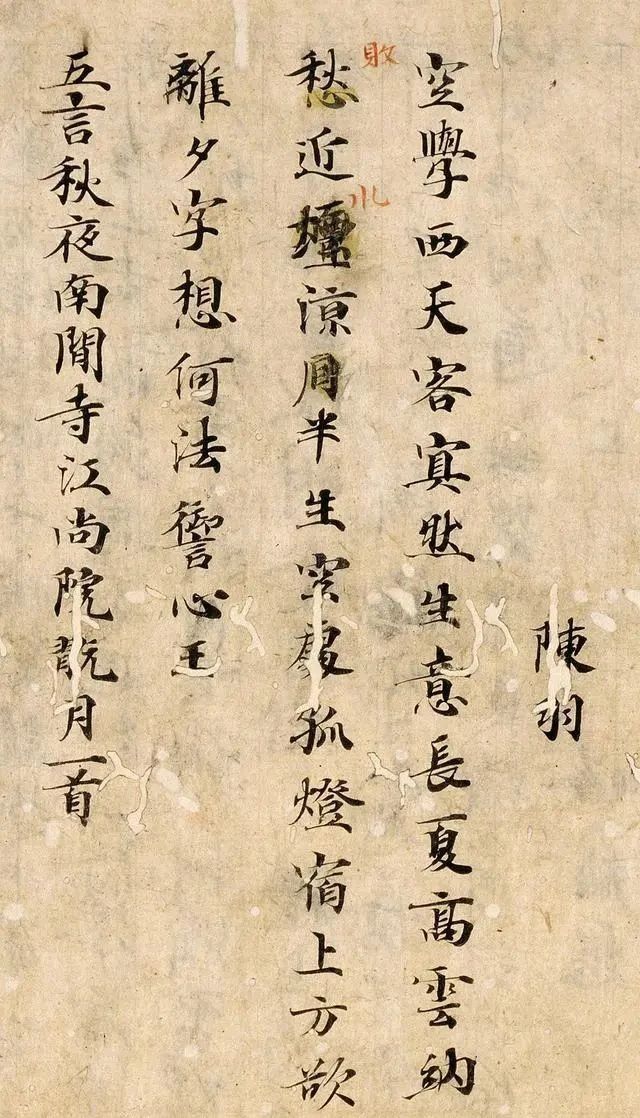 陳羽
空學西天客寘然生意長夏高雲納
敗
愁近涼半生空處孤燈宿上方欲
離夕字想何法心王
五言秋夜南閒寺江尚院翫月一首